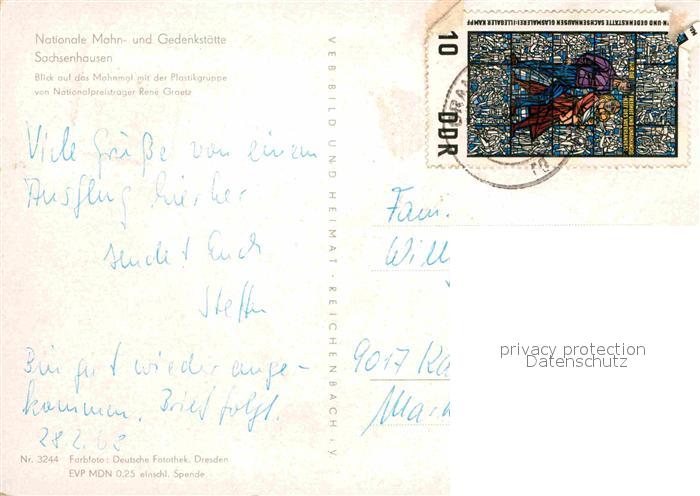 Nationale Mahn- und Gedenkstätte
Sachsenhausen
Blick auf das Mahnmal mit der Plastikgruppe
von Nationalpreisträger René Graetz
Viele Grüße von einem
Ausflug hierher
sendet Euch
Steffen
Bin gut wieder ange-
kommen. Brief folgt.
28.2.68
Nr. 3244 Farbfoto: Deutsche Fotothek, Dresden
EVP MDN 0,25 einschl. Spende
VEB BILD UND HEIMAT · REICHENBACH i. V.
10
DDR
N- UND GEDENKSTÄTTE SACHSENHAUSEN GLASMALEREI: ILLEGALER KAMPF
Fam.
Will
9017 Ka
privacy protection
Datenschutz